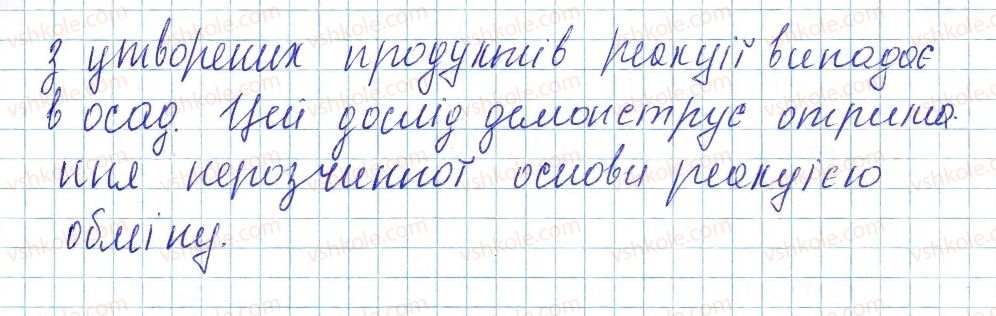 з утворених продуктів реакції випадає
в осад. Цей дослід демонструє отрима-
ння нерозчинної основи реакцією
обміну.